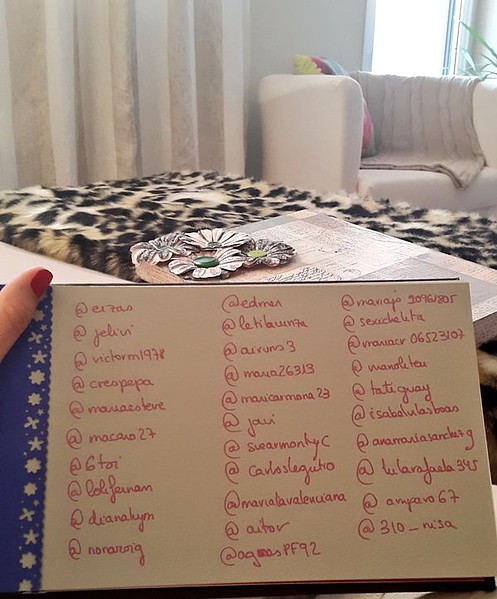 @erzas
@jelivi
@victorm1978
@crespepa
@mariaesteve
@macaro27
@6toi
@lolifernan
@dianakym
@nonaroig
@edmer
@airuns3
@maria26313
@maricarmona23
@javi
@suearmontyC
@carlosleguito
@mariolavalenciana
@aitor
@agnesPF92
@mariajo20961805
@sexichelita
@maricr06523107
@manolitea
@tatiguay
@isabelulasboas
@anamariasanche79
@lularafaela345
@amparo67
@310_nisa